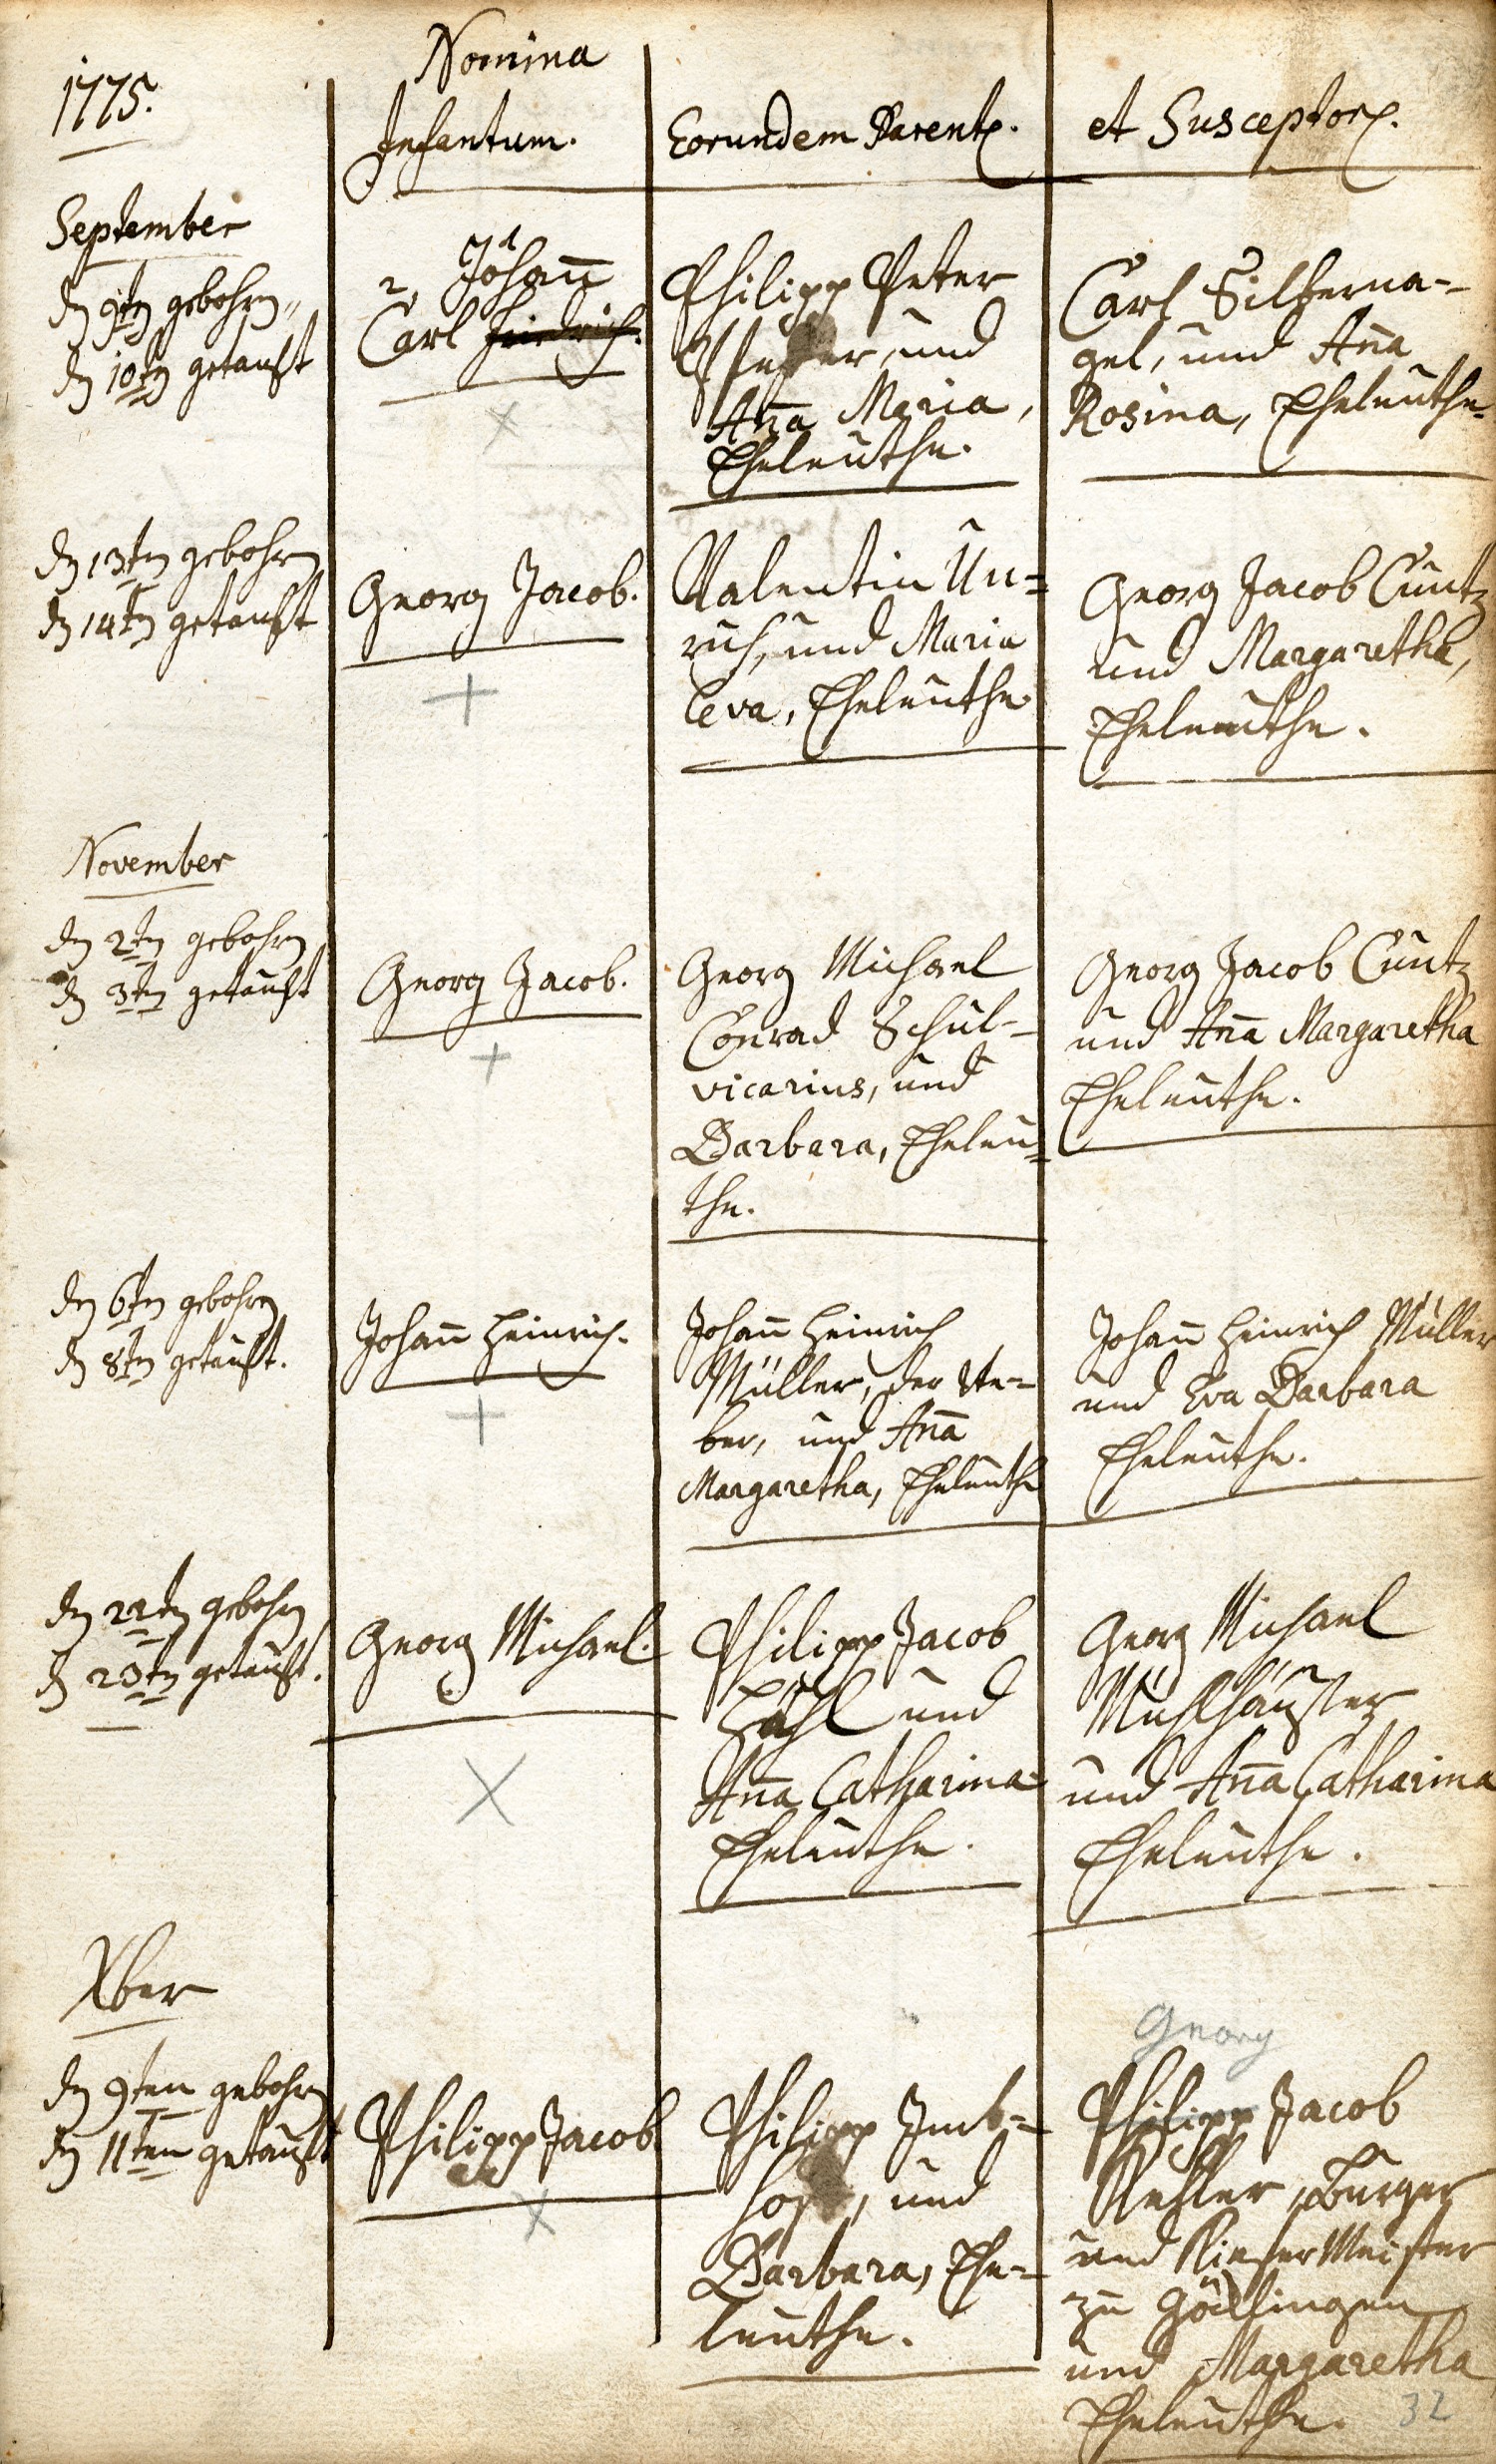 1775.
Nomina
Infantum.
Eorundem Parent.
et Susceptor.
September
d 9ten gebohrn,,
d 10ten getauft
1
2, Johann̄
Carl Friedrich.
Philipp Peter
und
Ann̄a Maria,
Eheleuthe.
Carl Silberna-
gel, und Ann̄a
Rosina, Eheleuthe
d 13ten gebohrn
d 14ten getauft
Georg Jacob.
Valentin Un=
ruh, und Maria
Eva, Eheleuthe
Georg Jacob Cuntz
und Margaretha,
Eheleuthe.
November
dn 2ten gebohrn
d 3ten getauft
Georg Jacob.
Georg Michael
Conrad Schul-
vicarius, und
Barbara, Eheleu=
the.
Georg Jacob Cuntz
und Ann̄a Margaretha
Eheleuthe.
dn 6ten gebohrn
d 8ten getauft.
Johann̄ Heinrich.
Johann̄ Heinrich
Müller, der We=
ber, und Ann̄a
Margaretha, Eheleuthe
Johann̄ Heinrich Müller
und Eva Barbara
Eheleuthe.
dn 22ten gebohrn
d 23ten getauft.
Georg Michael.
Philipp Jacob
und
Ann̄a Catharina
Eheleuthe.
Georg Michael
Mühlhäußer
und Ann̄a Catharina
Eheleuthe.
Xber
dn 9ten gebohrn
dn 11ten getauft
Philipp Jacob
Philipp Imb=
und
Barbara, Ehe=
leuthe.
Georg
Philipp Jacob
Kuhler, Burger
und Kiefer Meister
zu Göcklingen
und Margaretha
Eheleuthe.
32